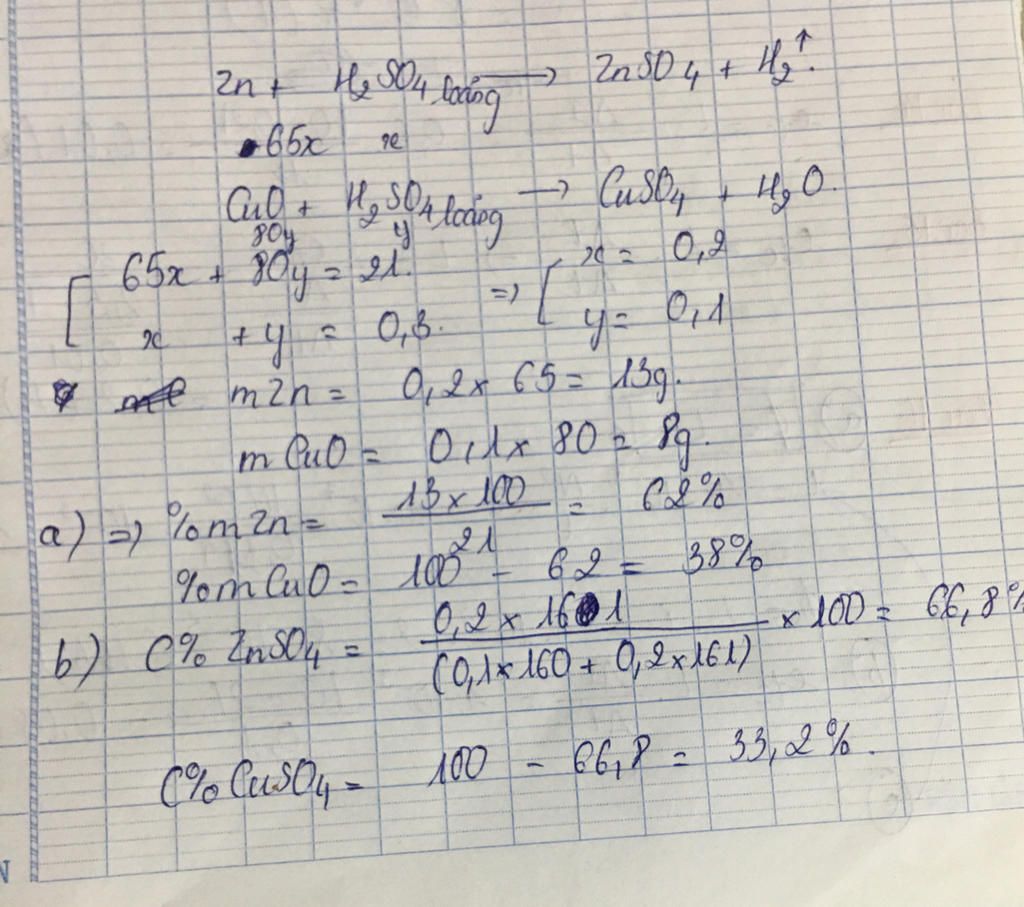 Zn + H₂SO₄ loãng → ZnSO₄ + H₂↑.
65x x
CuO + H₂SO₄ loãng → CuSO₄ + H₂O.
80y y
65x + 80y = 21. => x = 0,2
x + y = 0,3. y = 0,1
mZn = 0,2 x 65 = 13g.
mCuO = 0,1 x 80 = 8g.
a) => %mZn = 13 x 100 / 21 = 62%
%mCuO = 100 - 62 = 38%
b) C% ZnSO₄ = 0,2 x 161 / (0,1 x 160 + 0,2 x 161) x 100 = 66,8%
C% CuSO₄ = 100 - 66,8 = 33,2%.